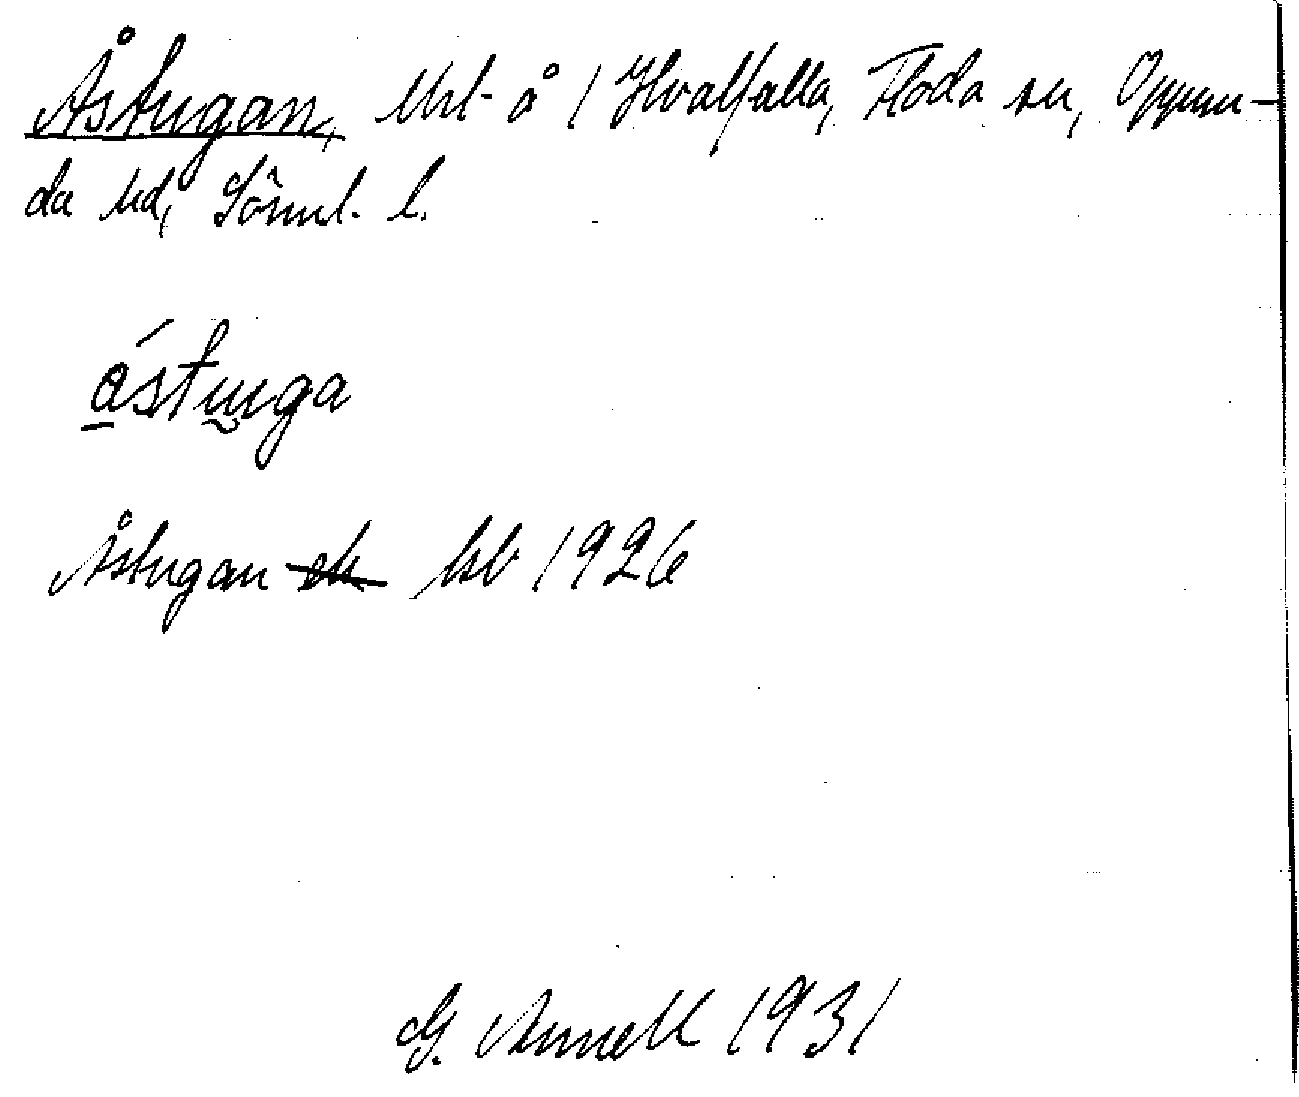 Åstugan, lht å 1 Hvalfalla, Floda sn, Oppun-
da hd, Södml. l.
åstu̬ga
Åstugan jsb 1926
G. Annell 1931